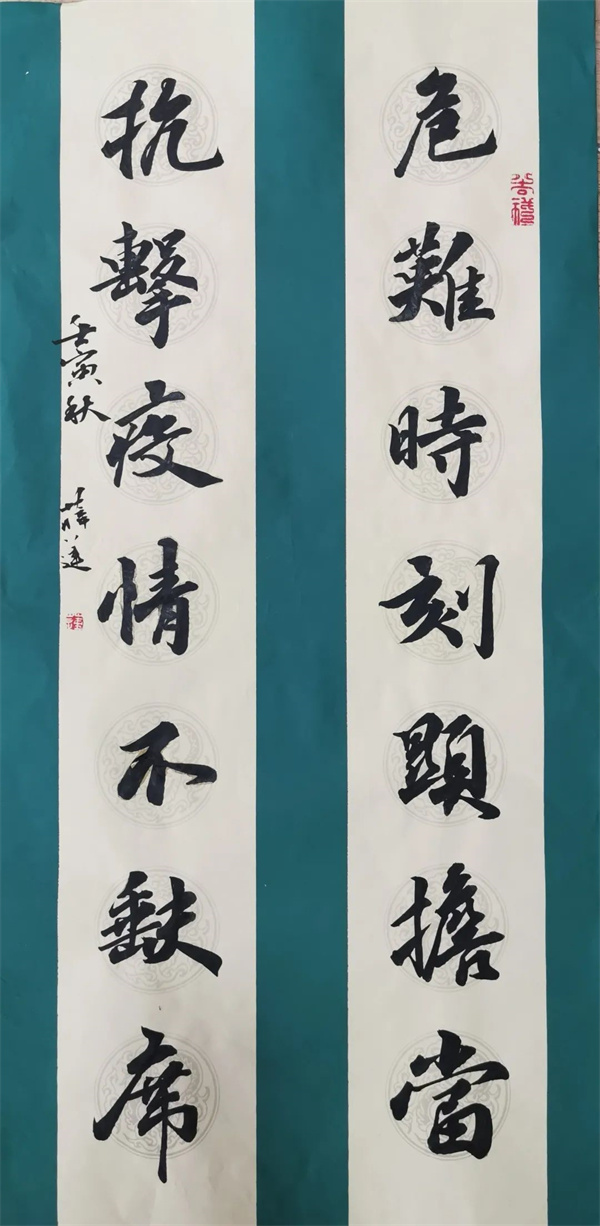 危難時刻顯擔當
抗擊疫情不缺席
壬寅秋